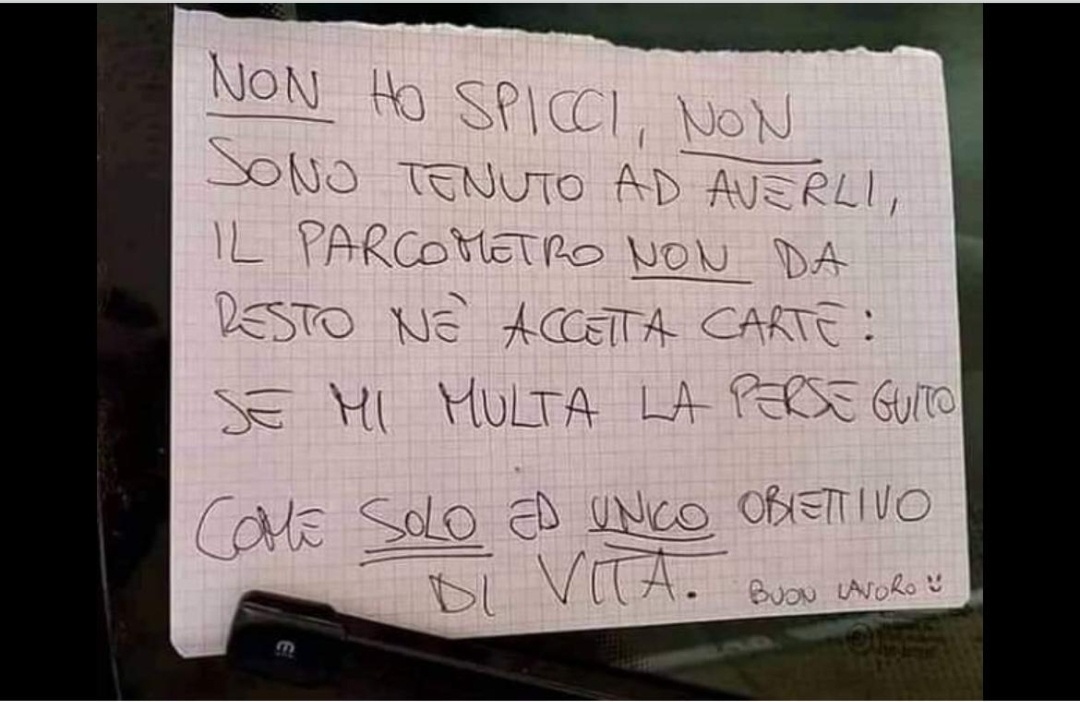 NON HO SPICCI, NON
SONO TENUTO AD AVERLI,
IL PARCOMETRO NON DA
RESTO NÈ ACCETTA CARTE:
SE MI MULTA LA PERSEGUITO
COME SOLO ED UNICO OBIETTIVO
DI VITA. BUON LAVORO :)